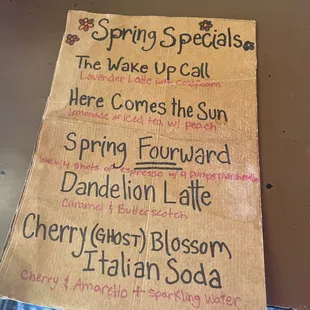 Spring Specials
The Wake Up Call
Lavender Latte with coldfoam
Here Comes the Sun
Lemonade or iced tea w/ peach
Spring Fourward
w/4 shots of espresso w/ 4 pumps marshmallow
Dandelion Latte
Caramel & Butterscotch
Cherry (GHOST) Blossom
Italian Soda
Cherry & Amaretto + sparkling water